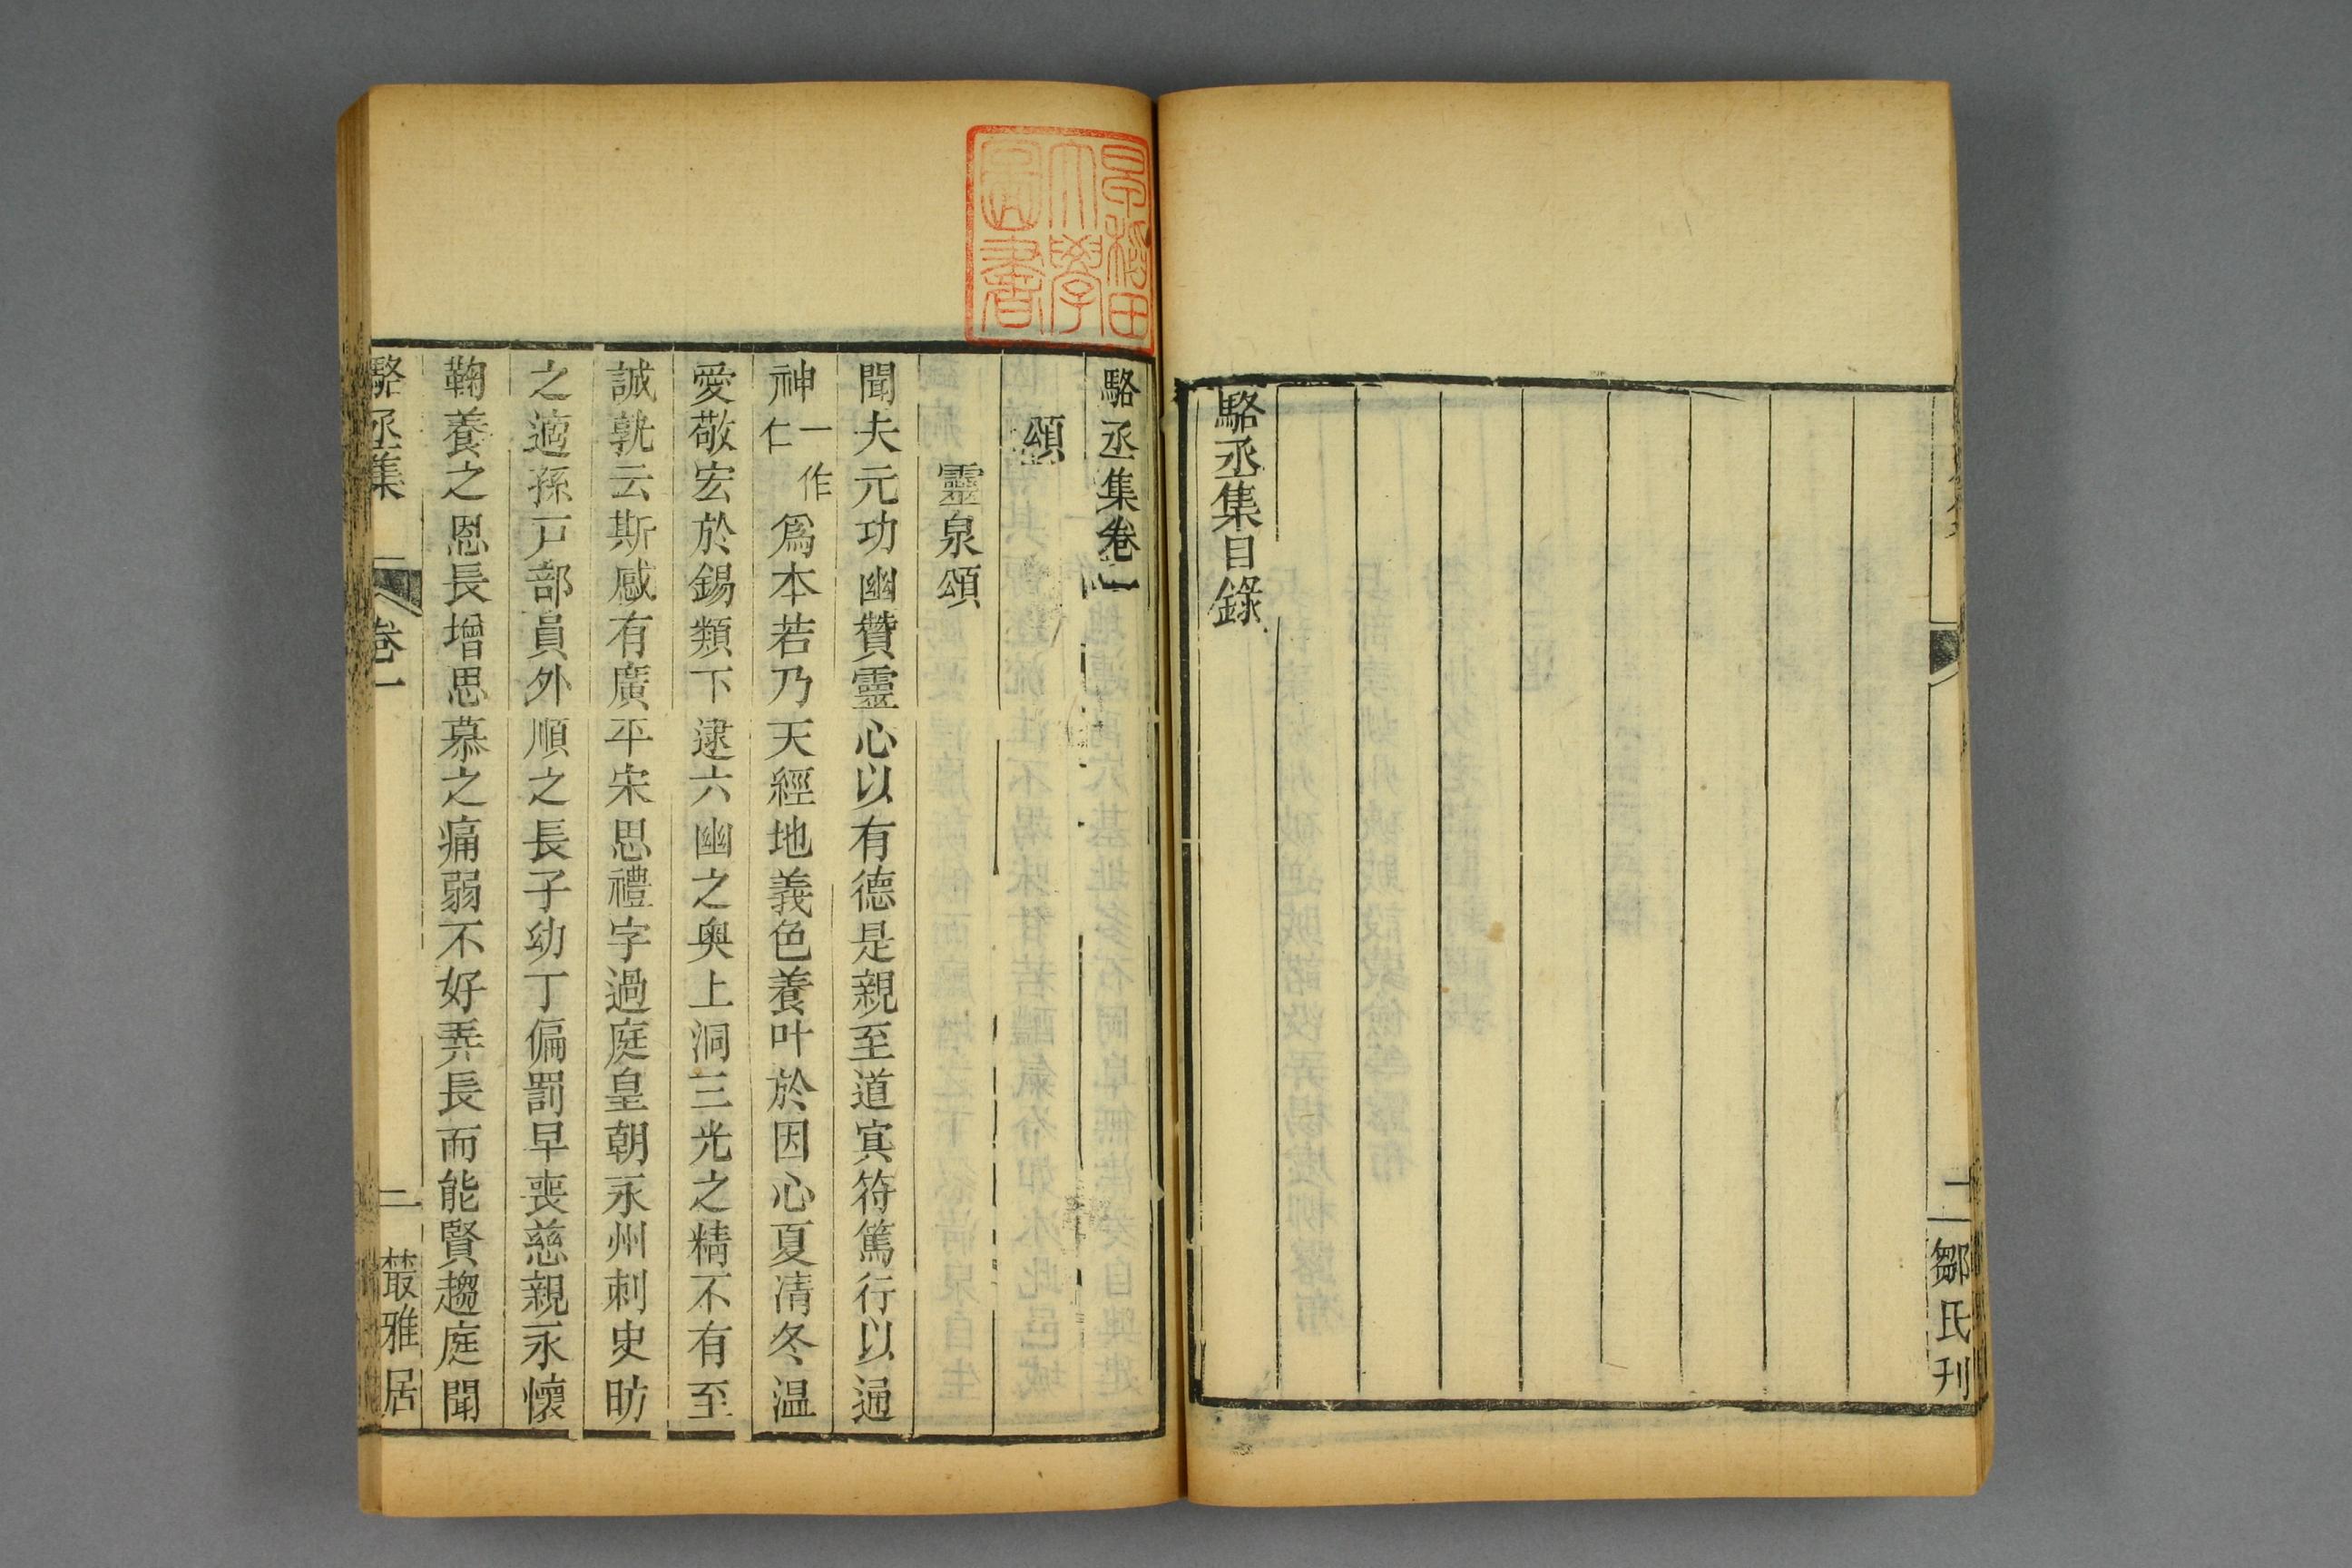 駱丞集目錄
二 鄒氏刊
駱丞集卷一
頌
靈泉頌
聞夫元功幽贊靈心以有德是親至道寅符篤行以通
神一作仁爲本若乃天經地義色養叶於因心夏凊冬温
愛敬宏於錫類下逮六幽之奥上洞三光之精不有至
誠孰云斯感有廣平宋思禮字過庭皇朝永州刺史昉
之適孫戸部員外順之長子幼丁偏罰早喪慈親永懷
鞠養之恩長增思慕之痛弱不好弄長而能賢趨庭聞
駱丞集 卷一 一 叢雅居
早稻田大學圖書